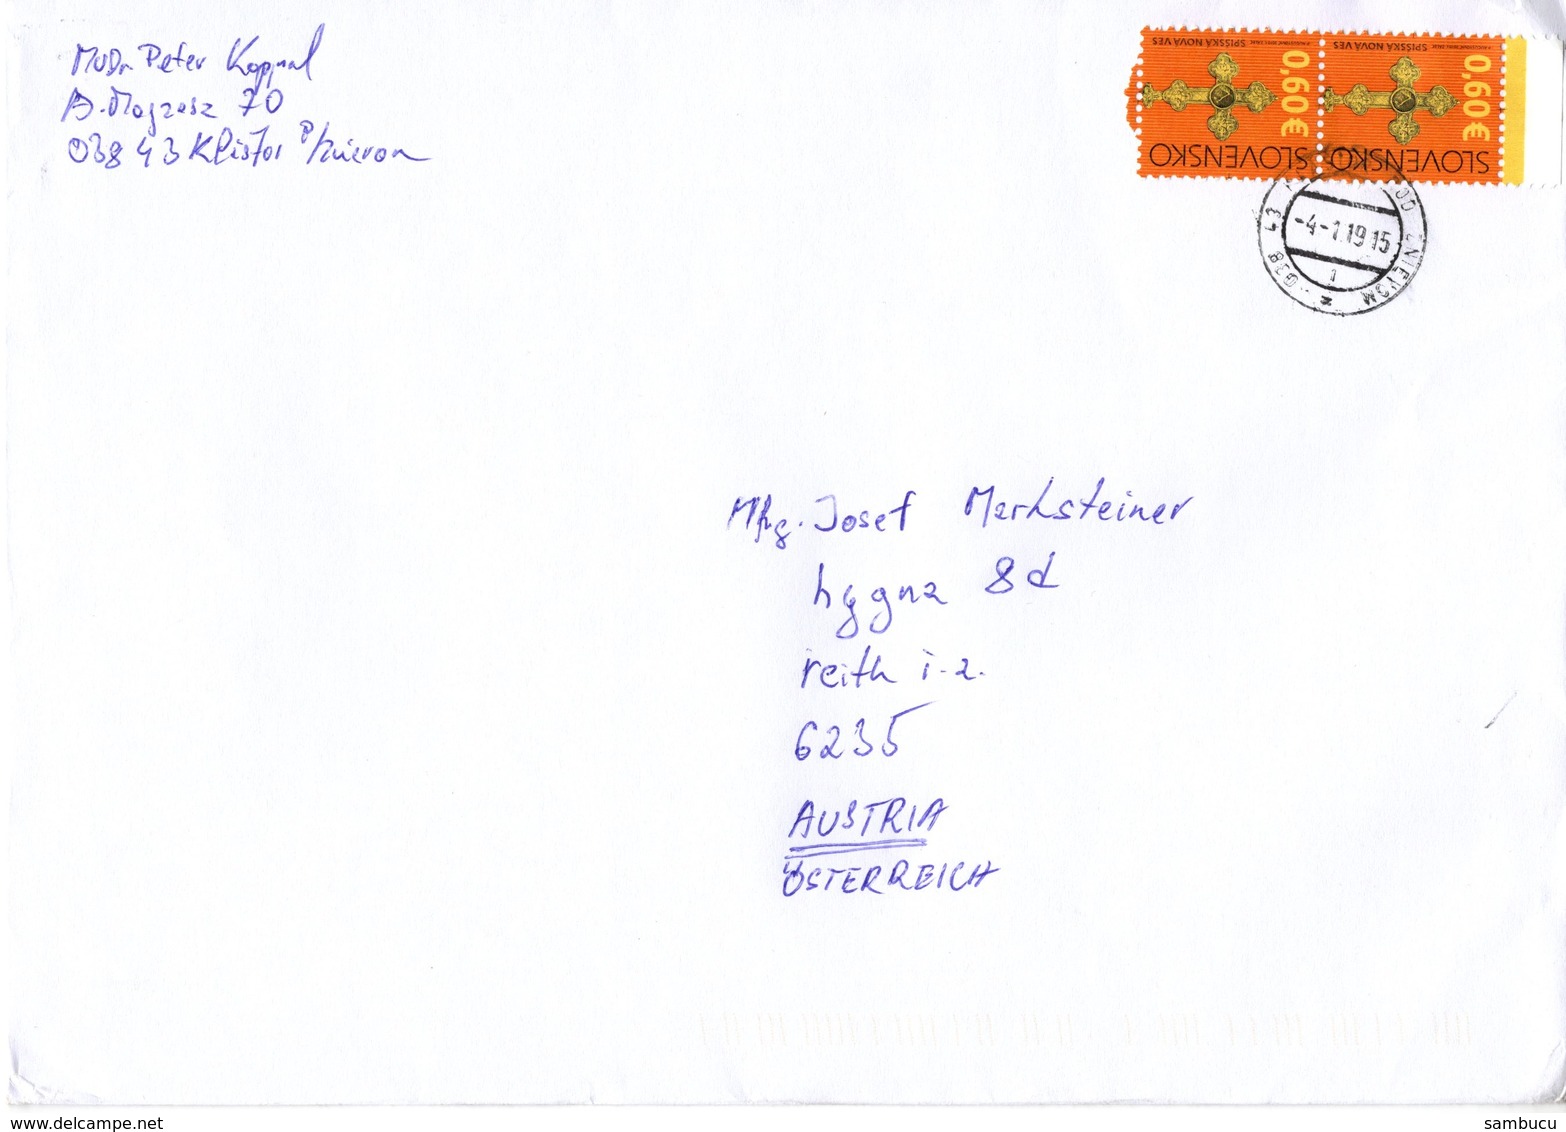 MUDr. Peter Koppal
A. Moyzesa 70
038 43 Kláštor p/Znievom
SLOVENSKO
0,60€
SPIŠSKÁ NOVÁ VES
SLOVENSKO
0,60€
SPIŠSKÁ NOVÁ VES
038 43 POD ZNIEVOM
-4-1.19 15
1
z
Mag. Josef Marksteiner
hygna 8d
reith i.a.
6235
AUSTRIA
ÖSTERREICH
www.delcampe.net
sambucu